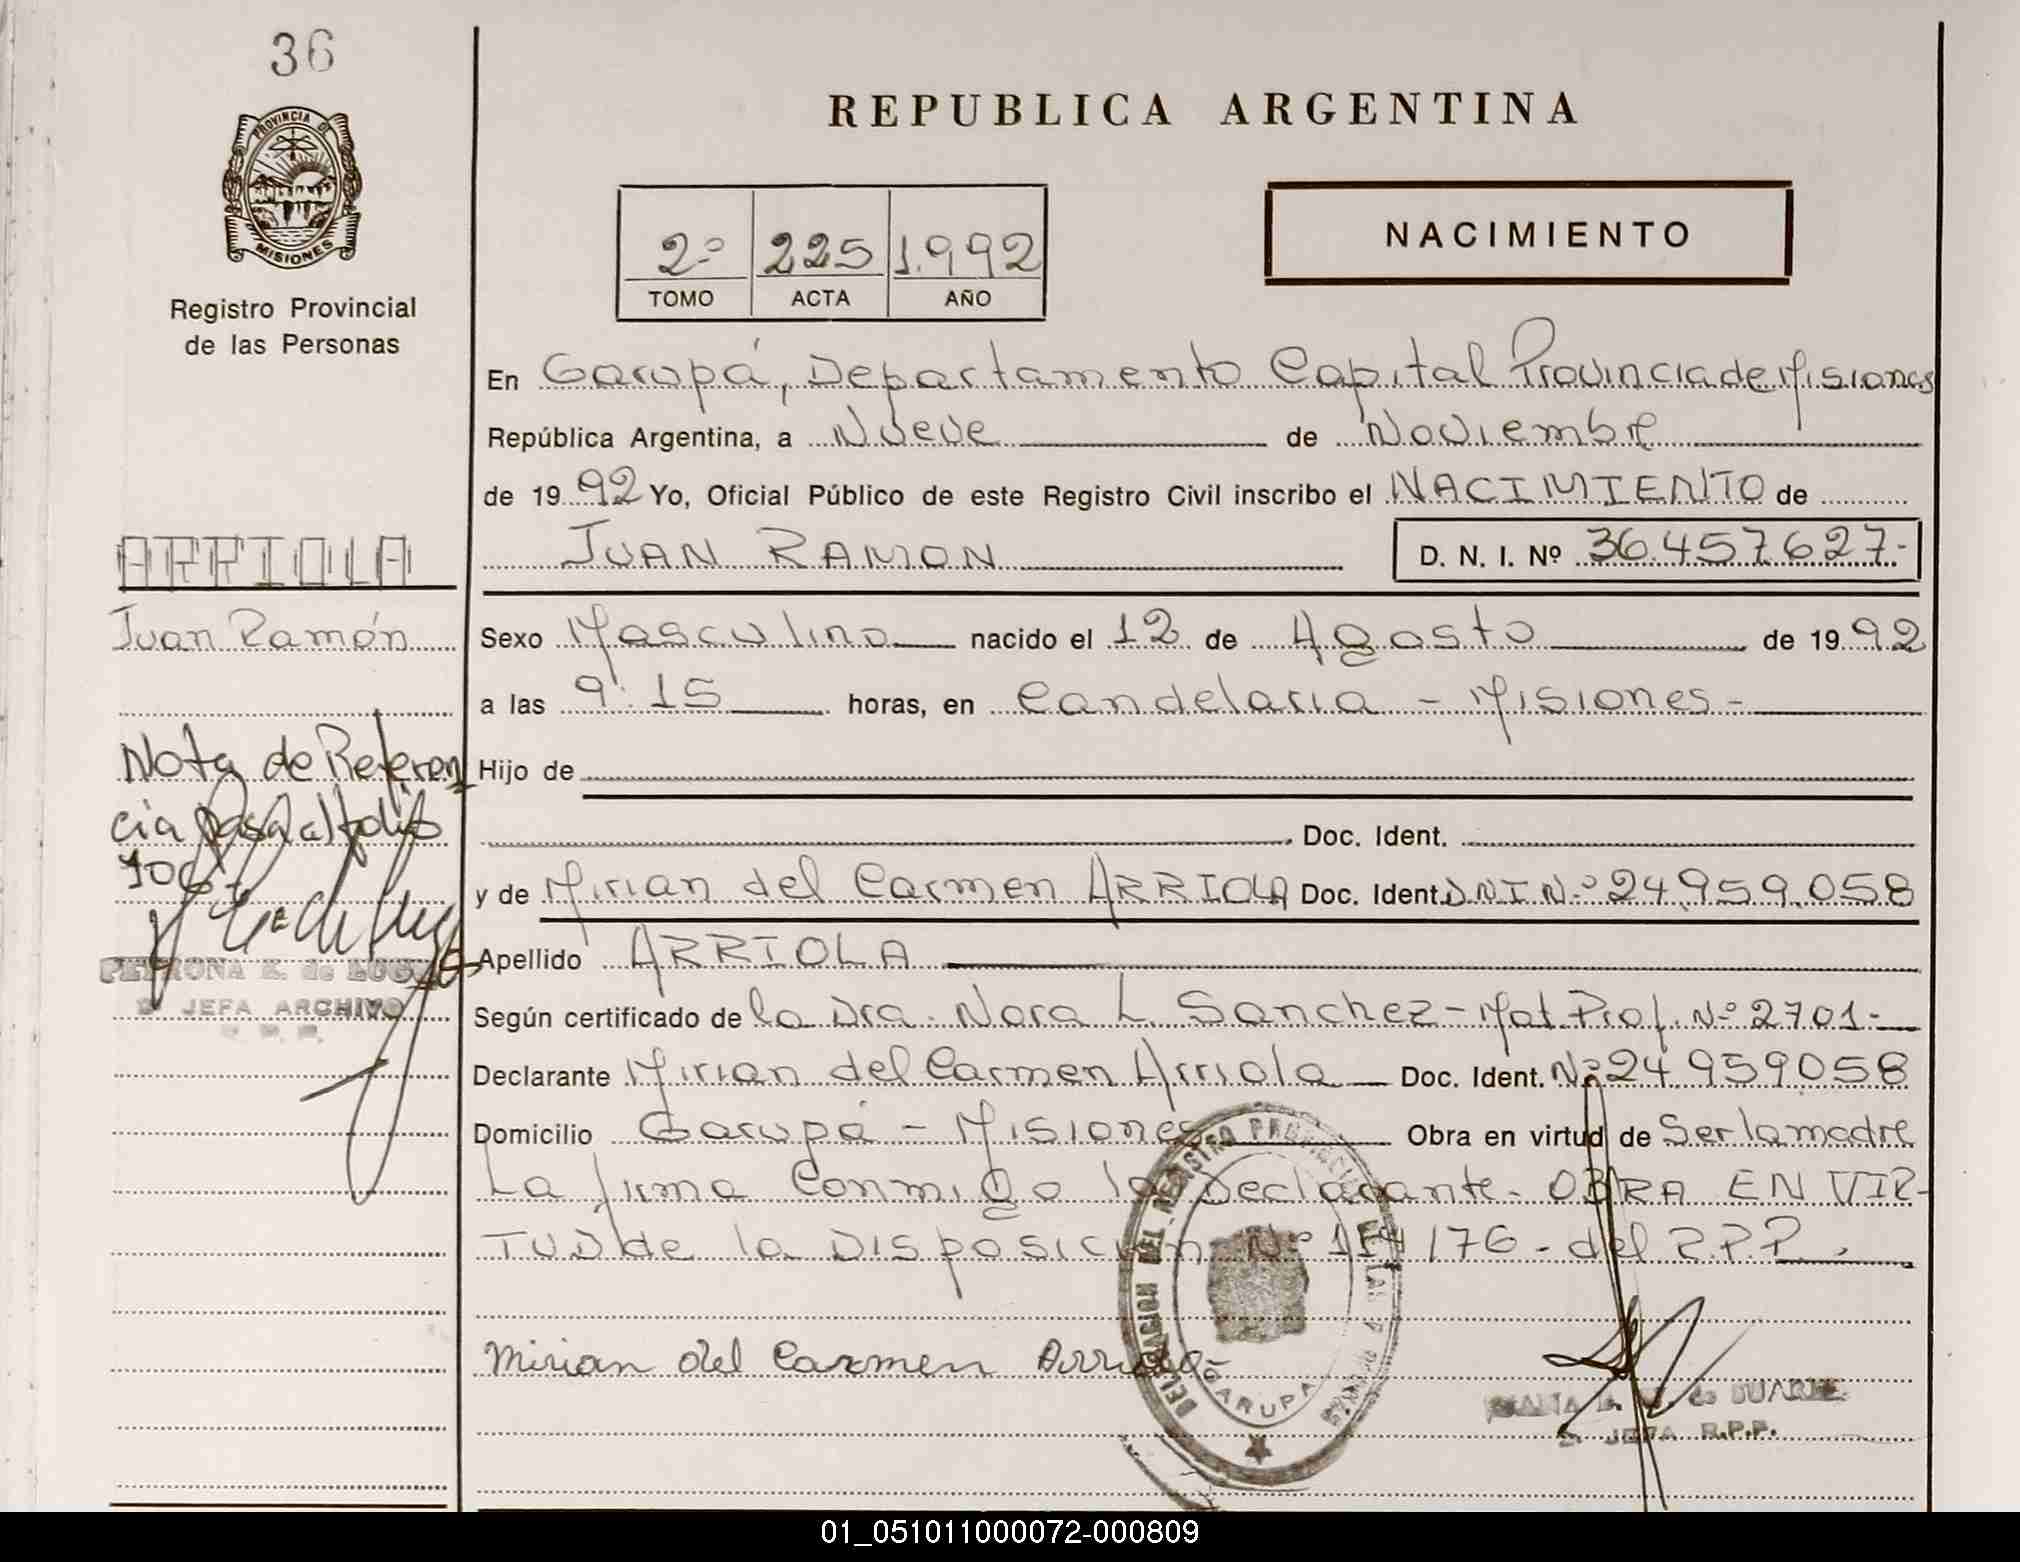 36
PROVINCIA DE
MISIONES
Registro Provincial
de las Personas
REPUBLICA ARGENTINA
2º 225 1.992
TOMO ACTA AÑO
NACIMIENTO
En Garupá, Departamento Capital Provincia de Misiones
República Argentina, a Nueve de Noviembre
de 1992 Yo, Oficial Público de este Registro Civil inscribo el NACIMIENTO de
JUAN RAMON D. N. I. Nº 36.457.627.-
ARRIOLA
Juan Ramón
Sexo Masculino nacido el 12 de Agosto de 1992
a las 9:15 horas, en Candelaria - Misiones -
Hijo de
Doc. Ident.
y de Mirian del Carmen ARRIOLA Doc. Ident. DNI Nº 24.959.058
Apellido ARRIOLA
Según certificado de la Dra. Nora L. Sanchez - Mat. Prof. Nº 2701.-
Declarante Mirian del Carmen Arriola Doc. Ident. Nº 24.959058
Domicilio Garupá - Misiones Obra en virtud de Ser la madre
La firma Conmigo la Declarante. OBRA EN VIR-
TUD de la Disposición Nº 114/76 - del R.P.P.
Mirian del Carmen Arriola
Nota de Referen
cia Pasa al folio
106
PETRONA E. de LUGO
JEFA ARCHIVO
DEL REGISTRO PROVINCIAL DE LAS PERSONAS
GARUPA
de DUARTE
JEFA R.P.P.
01_051011000072-000809